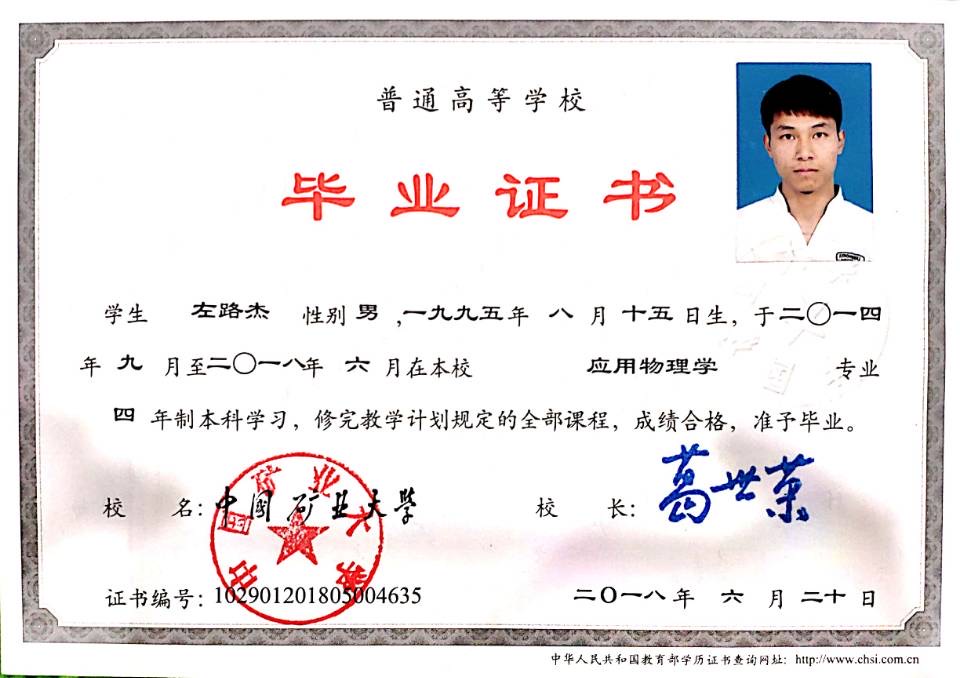 普通高等学校
毕业证书
学生 左路杰 性别 男 ,一九九五年 八 月 十五 日生，于二〇一四
年 九 月至二〇一八年 六 月在本校 应用物理学 专业
四 年制本科学习，修完教学计划规定的全部课程，成绩合格，准予毕业。
校 名：中国矿业大学 校 长：葛世荣
中国矿业大学
证书编号：102901201805004635 二〇一八年 六 月 二十日
中华人民共和国教育部学历证书查询网址：http://www.chsi.com.cn